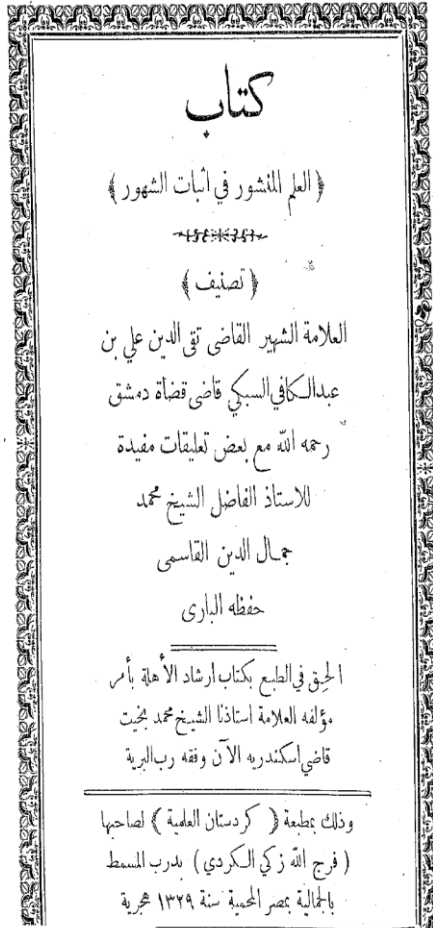 كتاب
﴿ العلم المنشور في اثبات الشهور ﴾
﴿ تصنيف ﴾
العلامة الشهير القاضى تقى الدين علي بن
عبدالكافي السبكي قاضى قضاة دمشق
رحمه الله مع بعض تعليقات مفيدة
للاستاذ الفاضل الشيخ محمد
جمال الدين القاسمى
حفظه البارى
الحق في الطبع بكتاب ارشاد الأهلة بأمر
مؤلفه العلامة استاذنا الشيخ محمد بخيت
قاضي اسكندريه الآن وفقه رب البرية
وذلك بمطبعة ﴿ كردستان العلمية ﴾ لصاحبها
( فرج الله زكي الكردي ) بدرب المسمط
بالجمالية بمصر المحمية سنة ١٣٢٩ هجرية